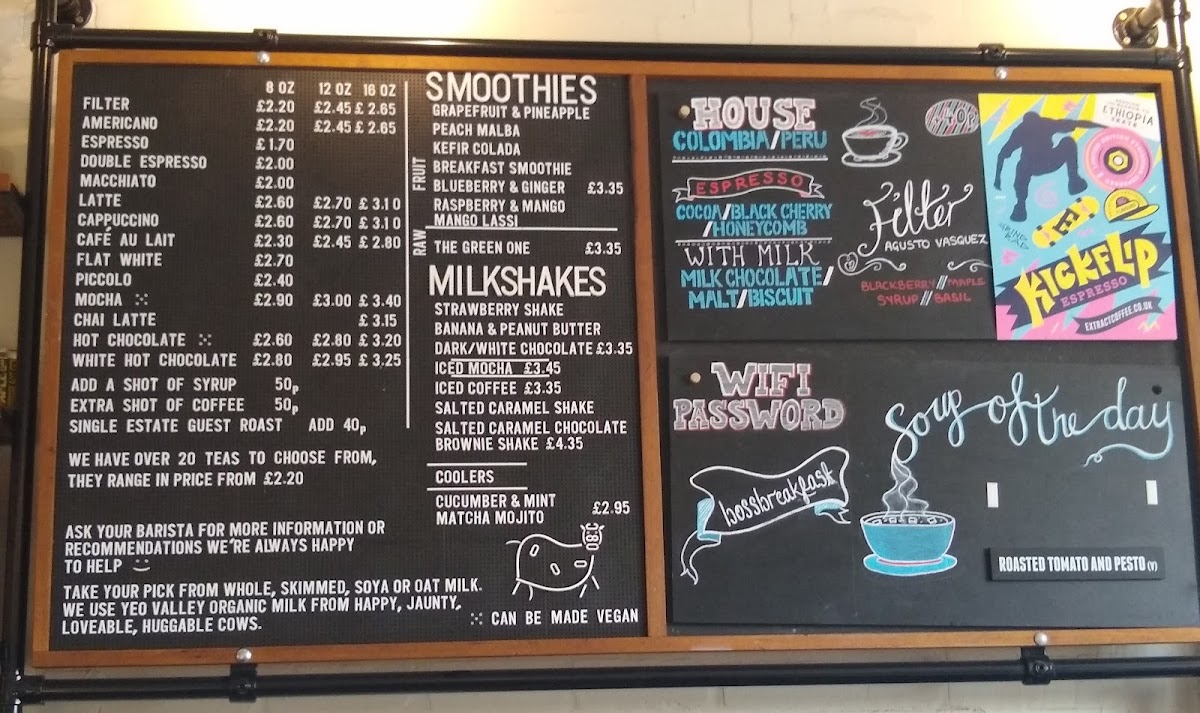 8 OZ 12 OZ 16 OZ
FILTER £2.20 £2.45 £2.65
AMERICANO £2.20 £2.45 £2.65
ESPRESSO £1.70
DOUBLE ESPRESSO £2.00
MACCHIATO £2.00
LATTE £2.60 £2.70 £3.10
CAPPUCCINO £2.60 £2.70 £3.10
CAFÉ AU LAIT £2.30 £2.45 £2.80
FLAT WHITE £2.70
PICCOLO £2.40
MOCHA £2.90 £3.00 £3.40
CHAI LATTE £3.15
HOT CHOCOLATE £2.60 £2.80 £3.20
WHITE HOT CHOCOLATE £2.80 £2.95 £3.25
ADD A SHOT OF SYRUP 50p
EXTRA SHOT OF COFFEE 50p
SINGLE ESTATE GUEST ROAST ADD 40p
WE HAVE OVER 20 TEAS TO CHOOSE FROM,
THEY RANGE IN PRICE FROM £2.20
ASK YOUR BARISTA FOR MORE INFORMATION OR
RECOMMENDATIONS WE'RE ALWAYS HAPPY
TO HELP
TAKE YOUR PICK FROM WHOLE, SKIMMED, SOYA OR OAT MILK.
WE USE YEO VALLEY ORGANIC MILK FROM HAPPY, JAUNTY,
LOVEABLE, HUGGABLE COWS.
SMOOTHIES
FRUIT
GRAPEFRUIT & PINEAPPLE
PEACH MALBA
KEFIR COLADA
BREAKFAST SMOOTHIE
BLUEBERRY & GINGER £3.35
RASPBERRY & MANGO
MANGO LASSI
RAW
THE GREEN ONE £3.35
MILKSHAKES
STRAWBERRY SHAKE
BANANA & PEANUT BUTTER
DARK/WHITE CHOCOLATE £3.35
ICED MOCHA £3.45
ICED COFFEE £3.35
SALTED CARAMEL SHAKE
SALTED CARAMEL CHOCOLATE
BROWNIE SHAKE £4.35
COOLERS
CUCUMBER & MINT £2.95
MATCHA MOJITO
CAN BE MADE VEGAN
HOUSE
COLOMBIA/PERU
ESPRESSO
COCOA/BLACK CHERRY
/HONEYCOMB
WITH MILK
MILK CHOCOLATE/
MALT/BISCUIT
Filter
AGUSTO VASQUEZ
BLACKBERRY//MAPLE
SYRUP//BASIL
ETHIOPIA
KICKFLIP
ESPRESSO
EXTRACTCOFFEE.CO.UK
WIFI
PASSWORD
bossbreakfast
Soup of the day
ROASTED TOMATO AND PESTO (V)